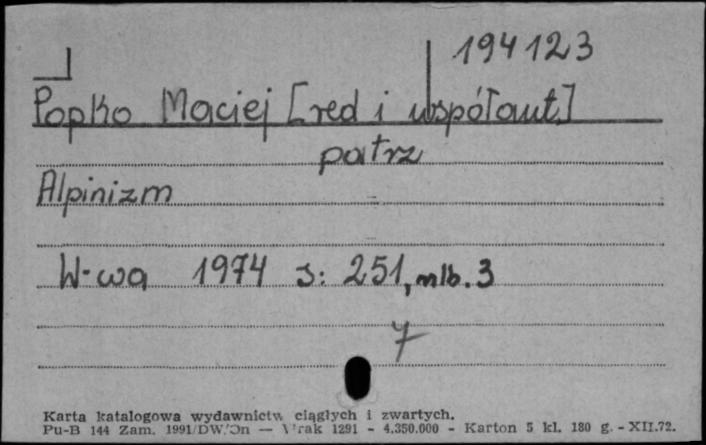 194123
Popko Maciej [red i współaut.]
patrz
Alpinizm
W-wa 1974 s: 251, nlb. 3
7
Karta katalogowa wydawnictw ciągłych i zwartych.
Pu-B 144 Zam. 1991/DW/On — 1291 - 4.350.000 - Karton 5 kl. 180 g. - XII.72.